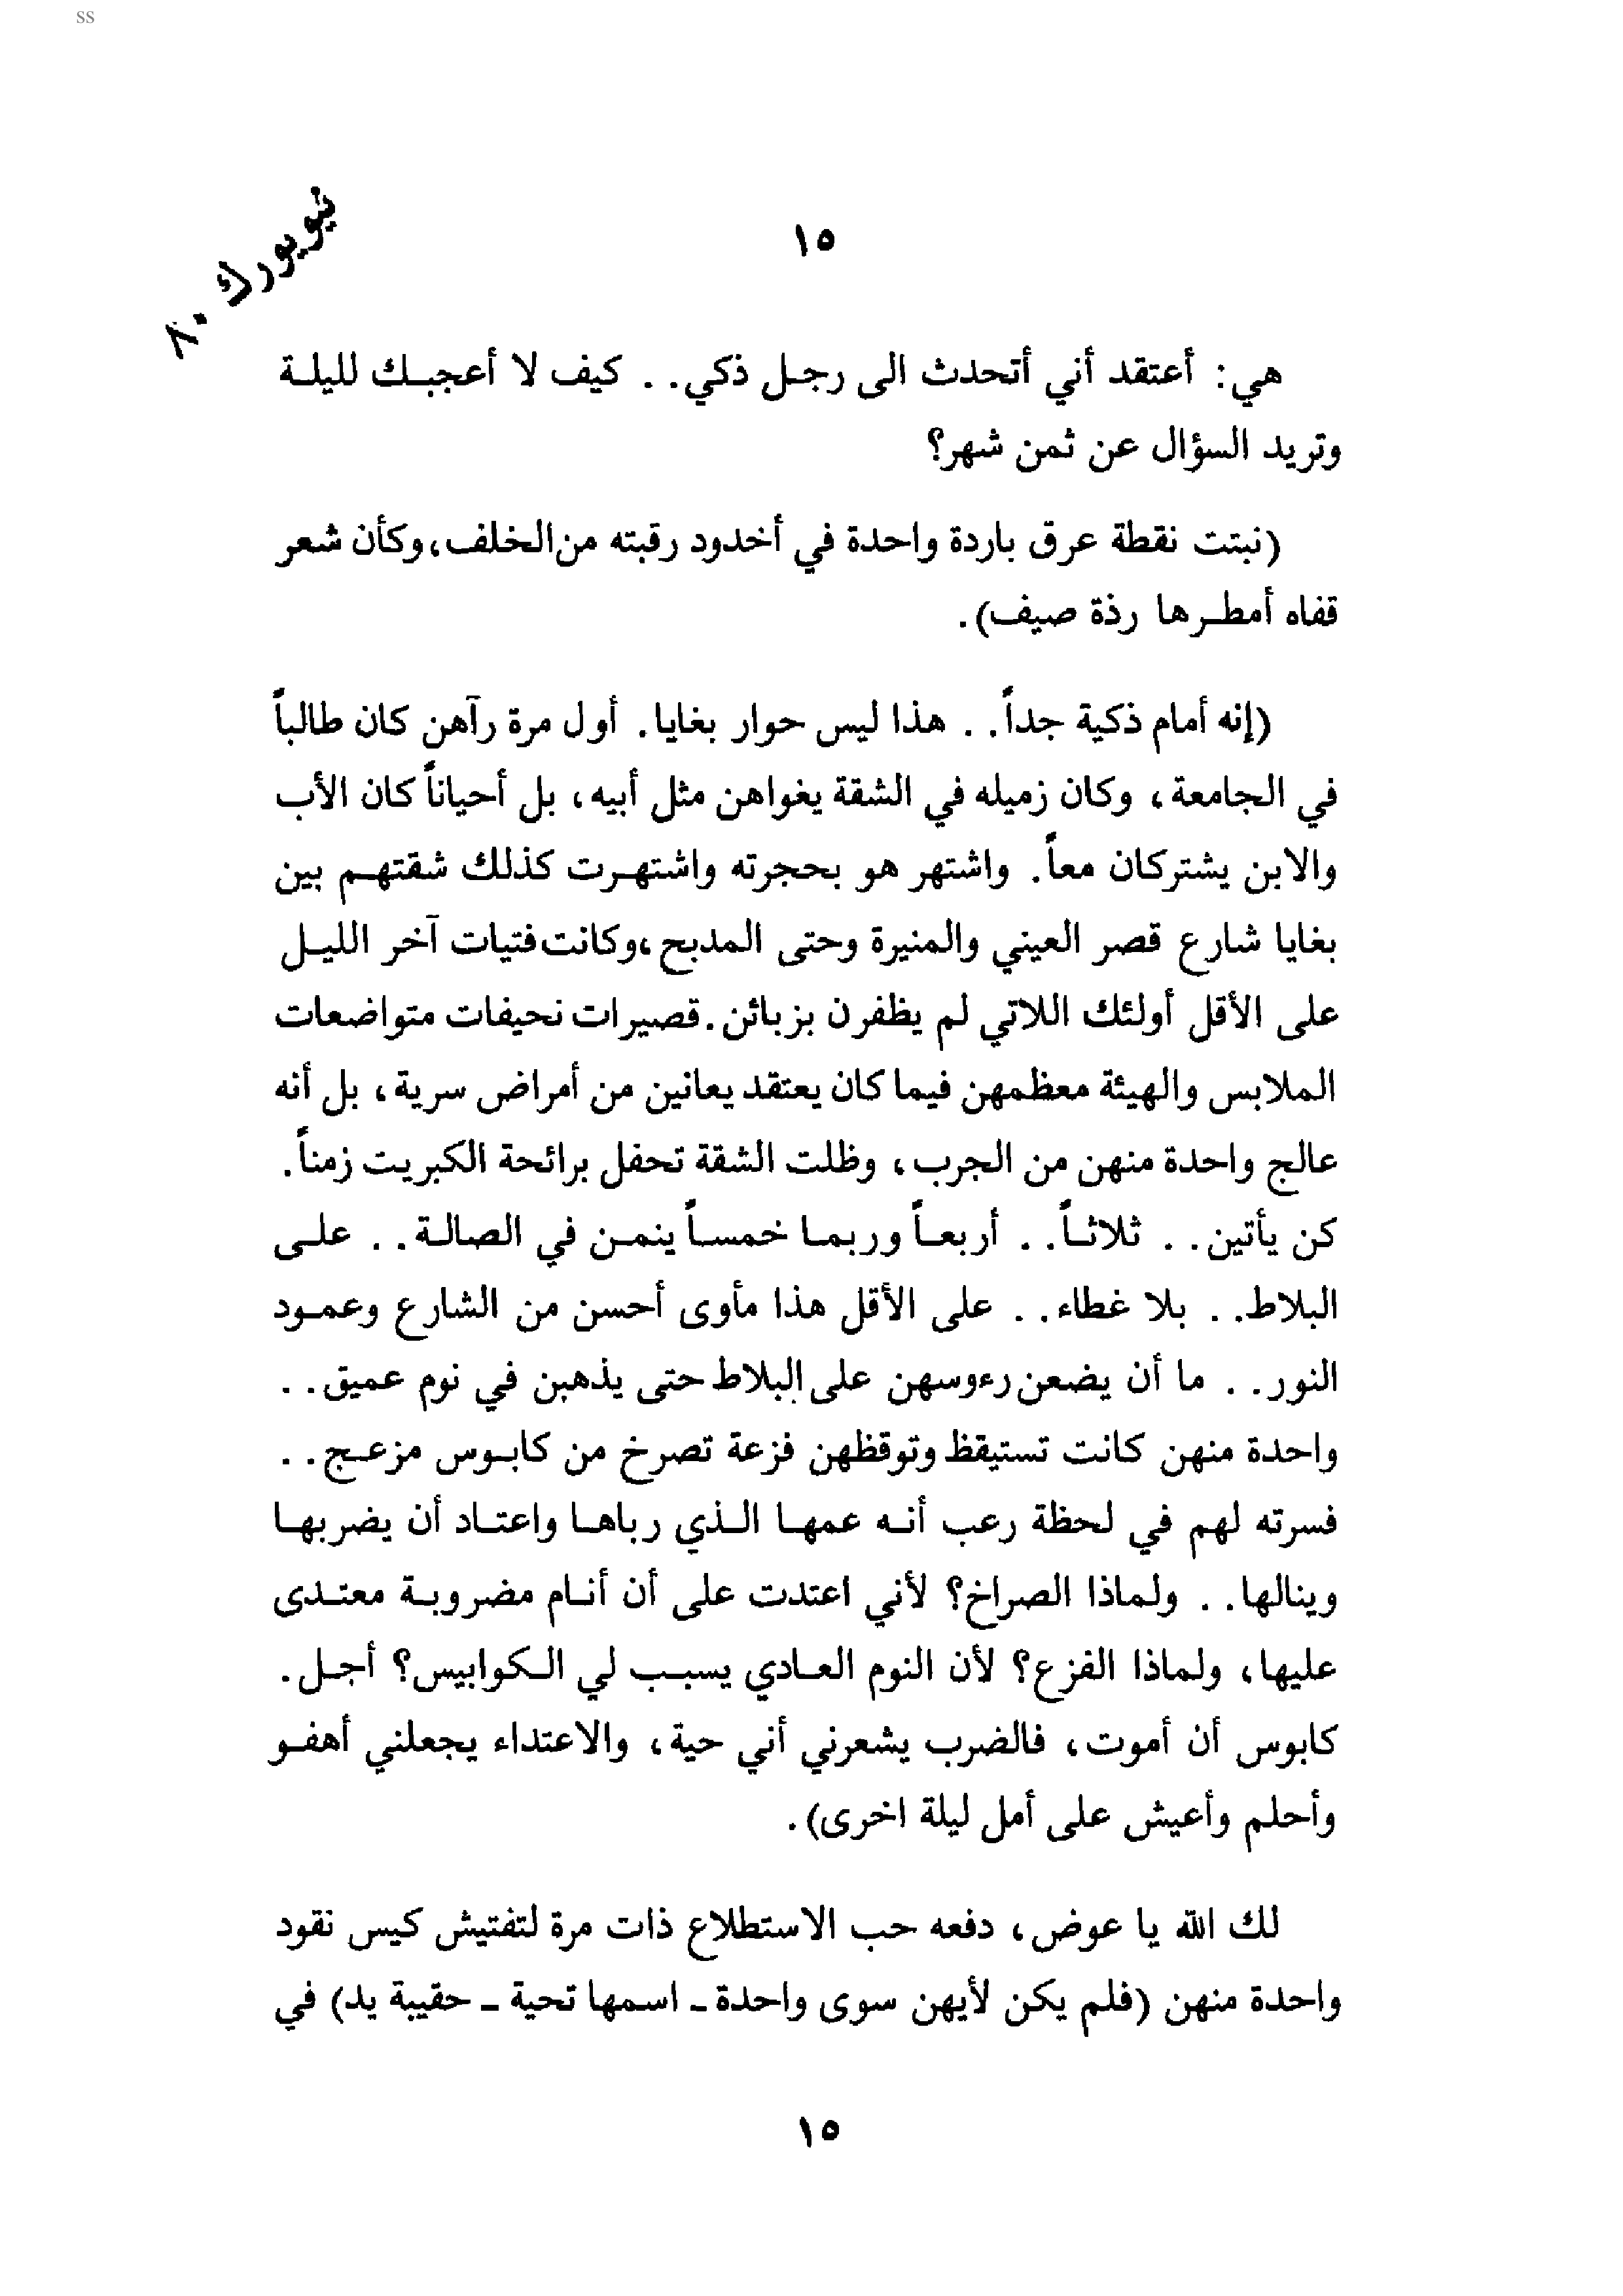 ss
نيويورك ٨٠
١٥
هي: أعتقد أني أتحدث الى رجل ذكي. . كيف لا أعجبك لليلة
وتريد السؤال عن ثمن شهر؟
(نبتت نقطة عرق باردة واحدة في أخدود رقبته من الخلف، وكأن شعر
قفاه أمطرها رذة صيف).
(إنه أمام ذكية جداً. . هذا ليس حوار بغايا. أول مرة رآهن كان طالباً
في الجامعة، وكان زميله في الشقة يغواهن مثل أبيه، بل أحياناً كان الأب
والابن يشتركان معاً. واشتهر هو بحجرته واشتهرت كذلك شقتهم بين
بغايا شارع قصر العيني والمنيرة وحتى المدبح، وكانت فتيات آخر الليل
على الأقل أولئك اللاتي لم يظفرن بزبائن. قصيرات نحيفات متواضعات
الملابس والهيئة معظمهن فيما كان يعتقد يعانين من أمراض سرية، بل أنه
عالج واحدة منهن من الجرب، وظلت الشقة تحفل برائحة الكبريت زمناً.
كن يأتين. . ثلاثاً. . أربعاً وربما خمساً ينمن في الصالة. . على
البلاط. . بلا غطاء. . على الأقل هذا مأوى أحسن من الشارع وعمود
النور. . ما أن يضعن رءوسهن على البلاط حتى يذهبن في نوم عميق. .
واحدة منهن كانت تستيقظ وتوقظهن فزعة تصرخ من كابوس مزعج. .
فسرته لهم في لحظة رعب أنه عمها الذي رباها واعتاد أن يضربها
وينالها. . ولماذا الصراخ؟ لأني اعتدت على أن أنام مضروبة معتدى
عليها، ولماذا الفزع؟ لأن النوم العادي يسبب لي الكوابيس؟ أجل.
كابوس أن أموت، فالضرب يشعرني أني حية، والاعتداء يجعلني أهفو
وأحلم وأعيش على أمل ليلة اخرى).
لك الله يا عوض، دفعه حب الاستطلاع ذات مرة لتفتيش كيس نقود
واحدة منهن (فلم يكن لأيهن سوى واحدة ـ اسمها تحية ـ حقيبة يد) في
١٥